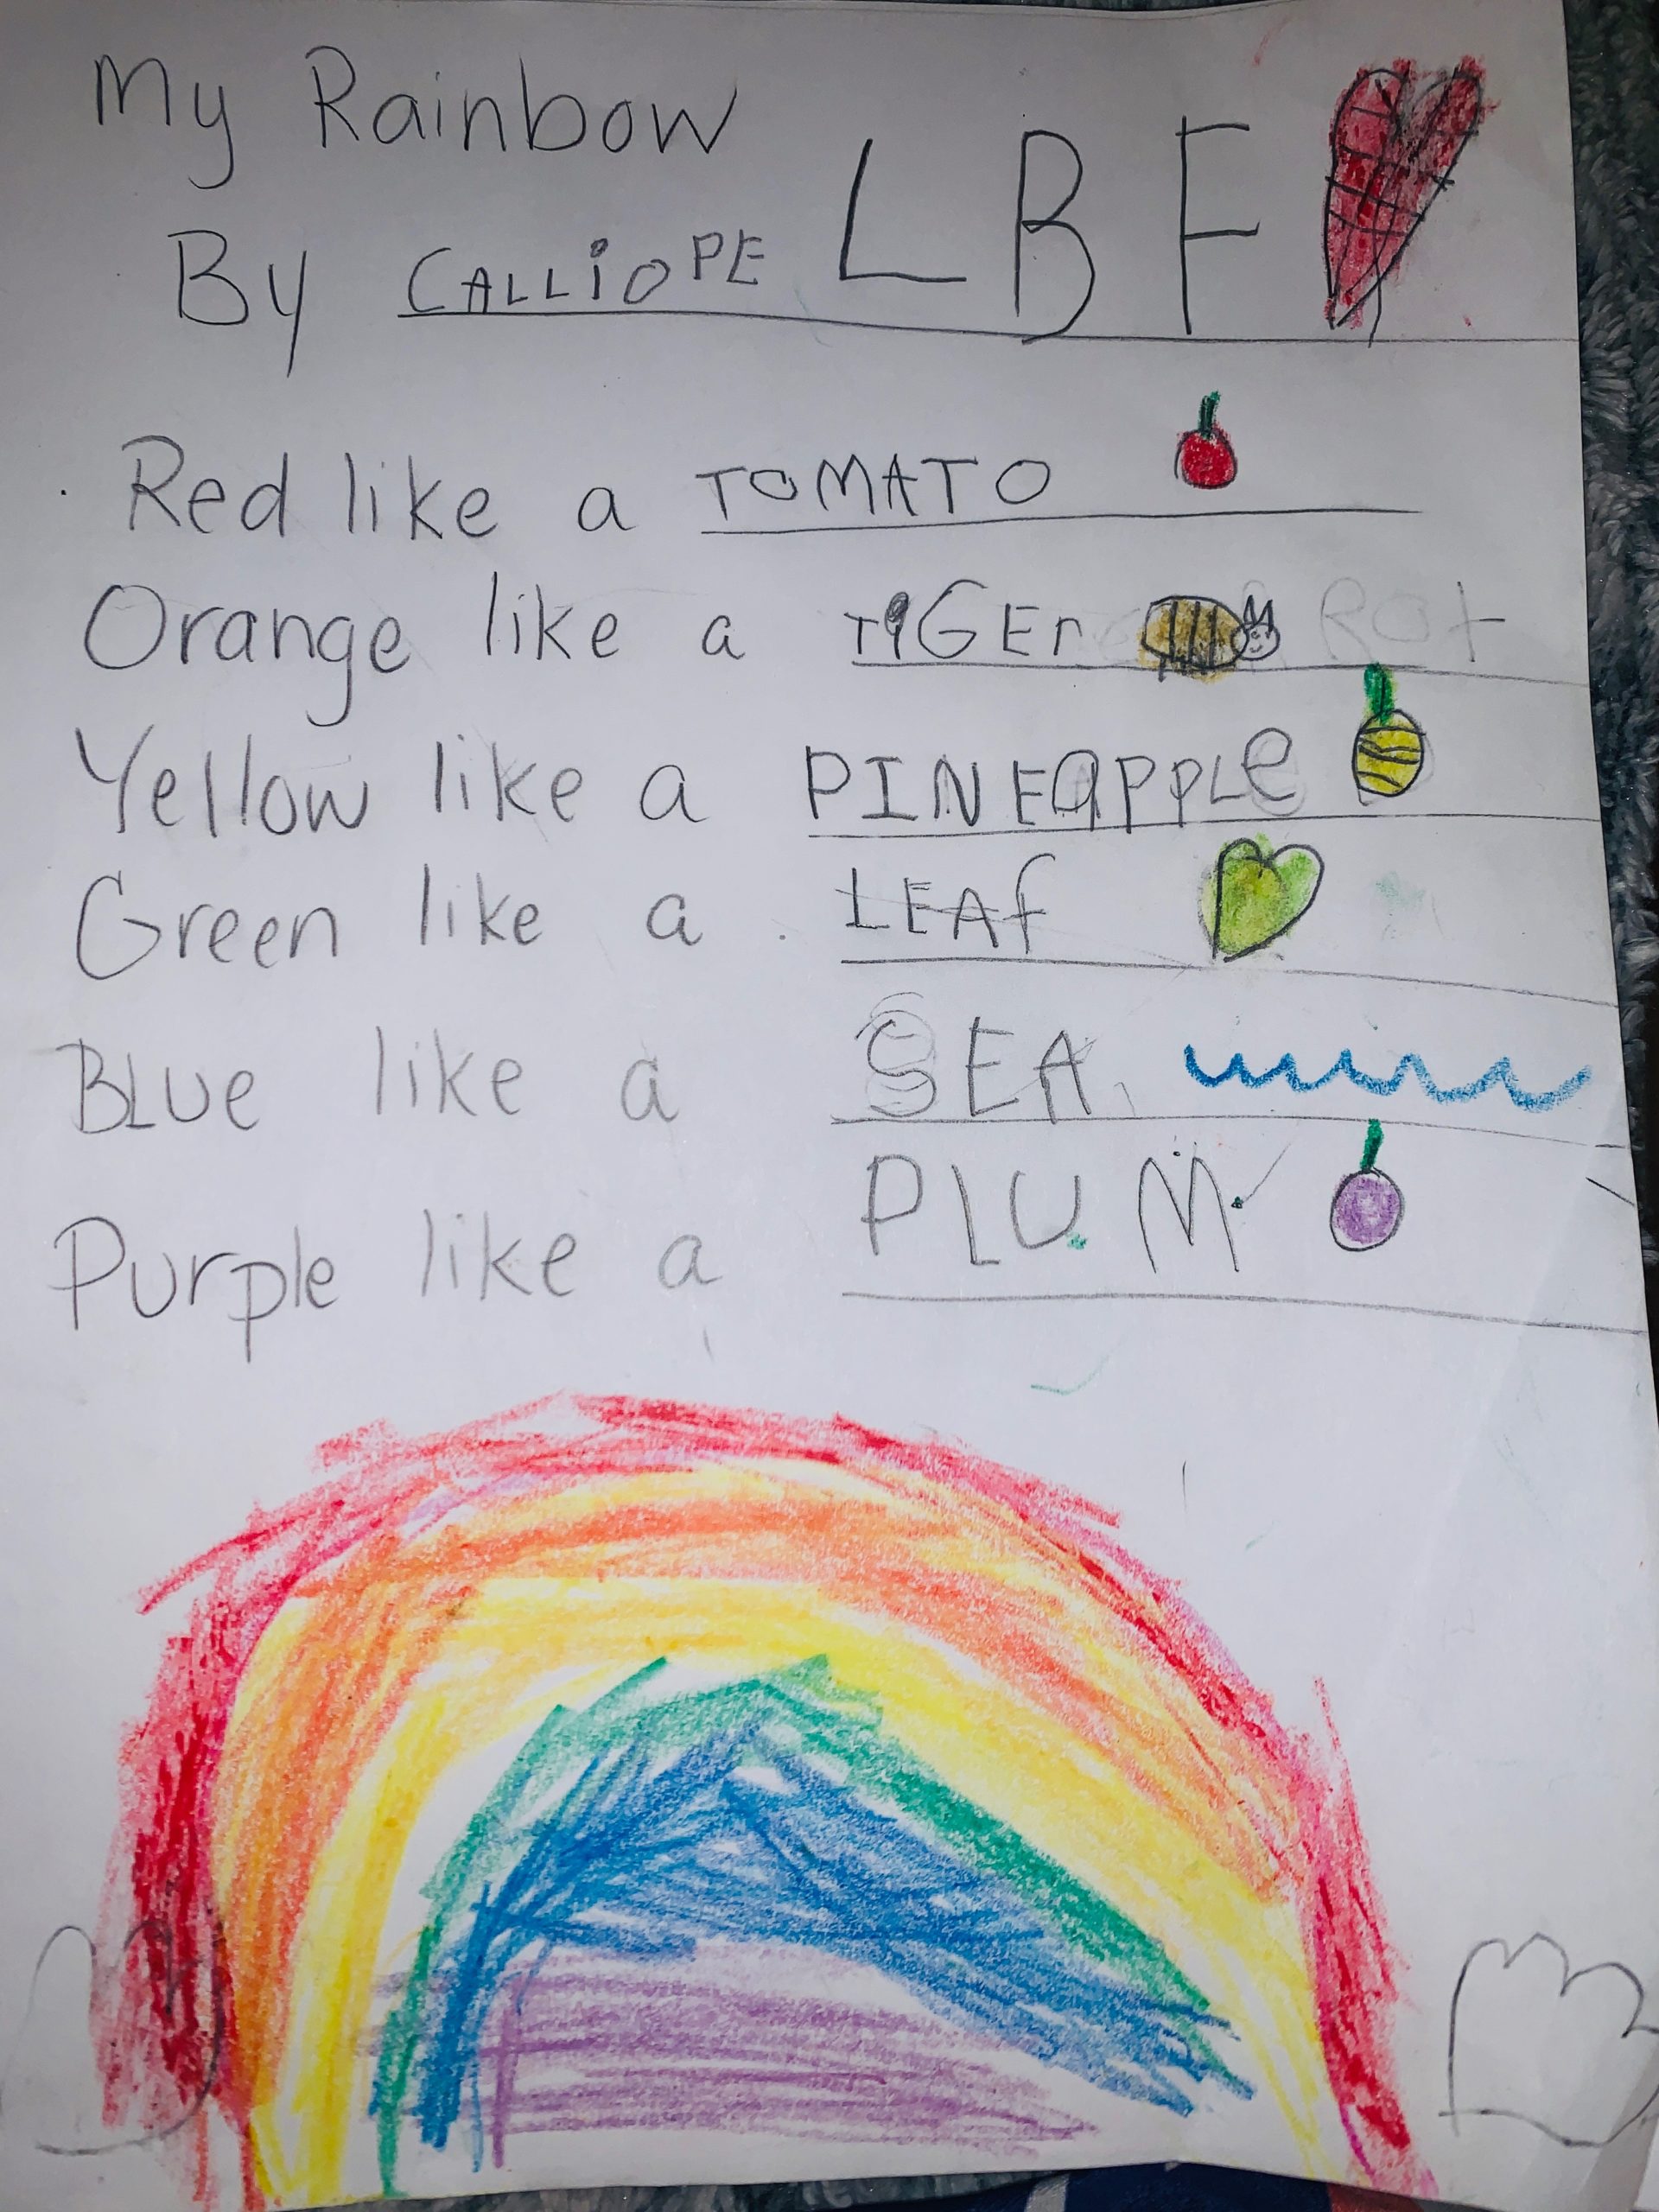 My Rainbow
By CALLiOPE LBF
Red like a TOMATO
Orange like a TiGEr Rot
Yellow like a PINEAPPLe
Green like a LEAf
BLUe like a SEA
Purple like a PLUM